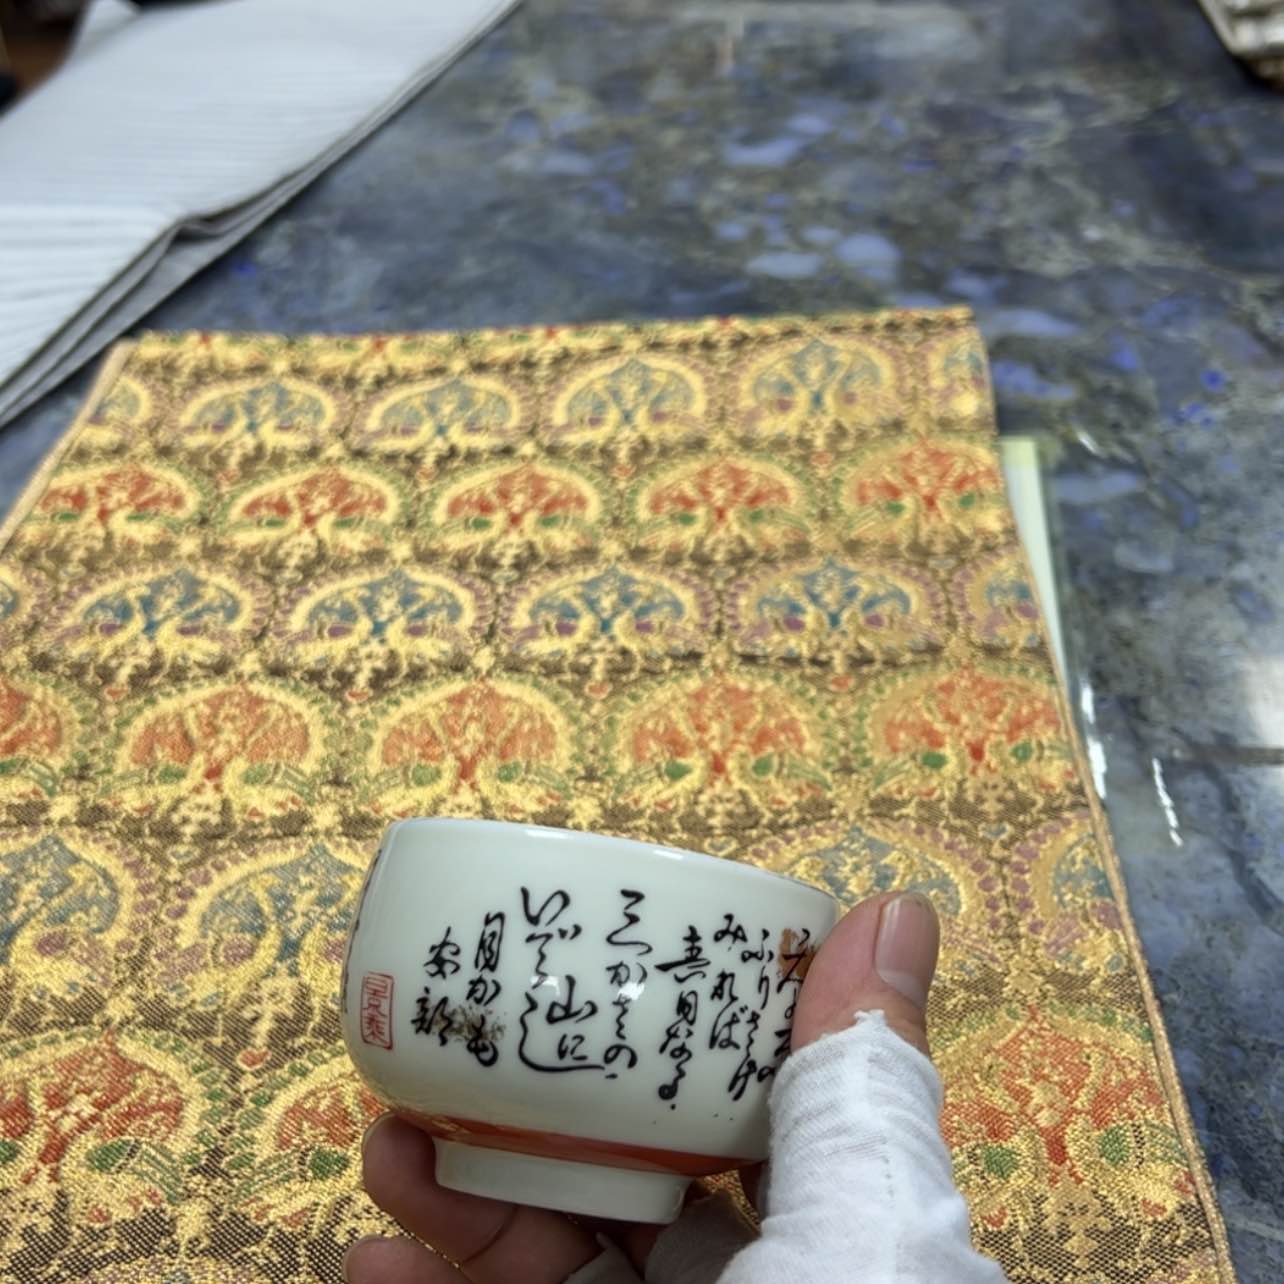 ふりさけ
みれば
春日なる
三かさの
山に
いでし
月かも
安部